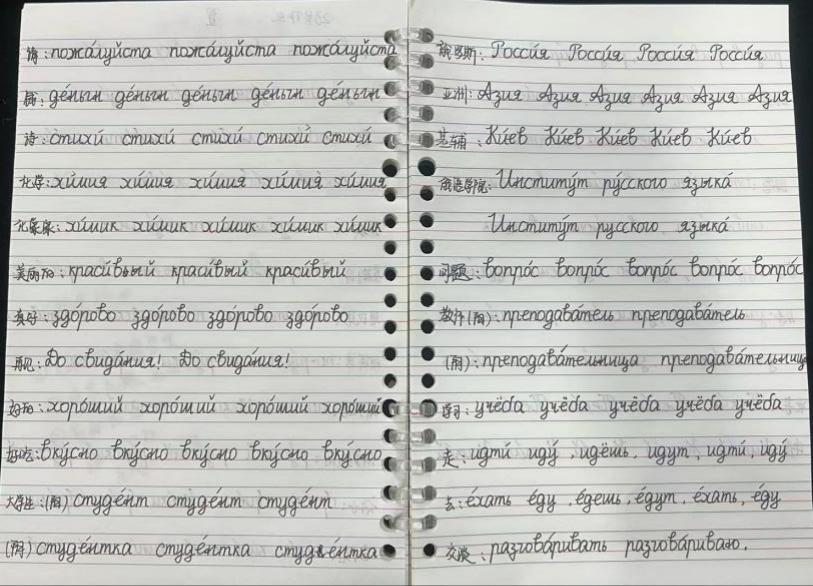 请: пожа́луйста пожа́луйста пожа́луйста
де́ньги де́ньги де́ньги де́ньги де́ньги
诗: стихи́ стихи́ стихи́ стихи́ стихи́
化学: хи́мия хи́мия хи́мия хи́мия хи́мия
化学家: хи́мик хи́мик хи́мик хи́мик хи́мик
美丽的: краси́вый краси́вый краси́вый
真好: здо́рово здо́рово здо́рово здо́рово
再见: До свида́ния! До свида́ния!
好的: хоро́ший хоро́ший хоро́ший хоро́ший
好吃: вку́сно вку́сно вку́сно вку́сно вку́сно
大学生: (阳) студе́нт студе́нт студе́нт
(阴) студе́нтка студе́нтка студе́нтка
俄罗斯: Росси́я Росси́я Росси́я Росси́я
亚洲: А́зия А́зия А́зия А́зия А́зия А́зия
基辅: Ки́ев Ки́ев Ки́ев Ки́ев Ки́ев
俄语学院: Институ́т ру́сского языка́
Институ́т русского языка́
问题: вопро́с вопро́с вопро́с вопро́с вопро́с
教师(阳): преподава́тель преподава́тель
(阴): преподава́тельница преподава́тельница
学习: учёба учёба учёба учёба учёба
走: идти́ иду́, идёшь, идут, идти́, иду́
去: е́хать е́ду, е́дешь, е́дут, е́хать, е́ду
交谈: разгова́ривать разгова́риваю.